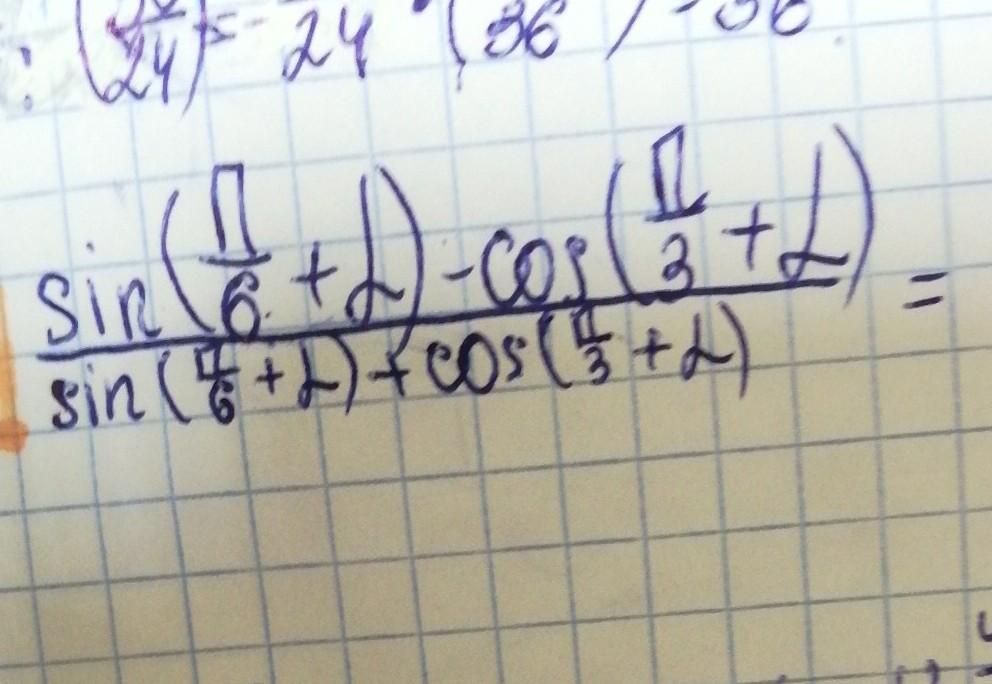 : (/24) = - /24 · (36) - 36
sin(π/6 + α) - cos(π/3 + α) =
sin(π/6 + α) + cos(π/3 + α)